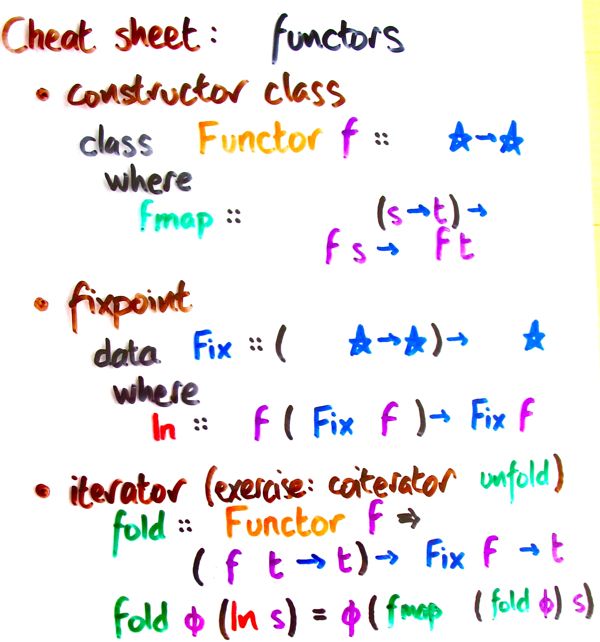 Cheat sheet: functors
• constructor class
class Functor f :: ☆→☆
where
fmap :: (s→t)→
f s → f t
• fixpoint
data Fix :: ( ☆→☆)→ ☆
where
In :: f ( Fix f )→ Fix f
• iterator (exercise: coiterator unfold)
fold :: Functor f ⇒
( f t → t)→ Fix f → t
fold ϕ (In s) = ϕ (fmap (fold ϕ) s)